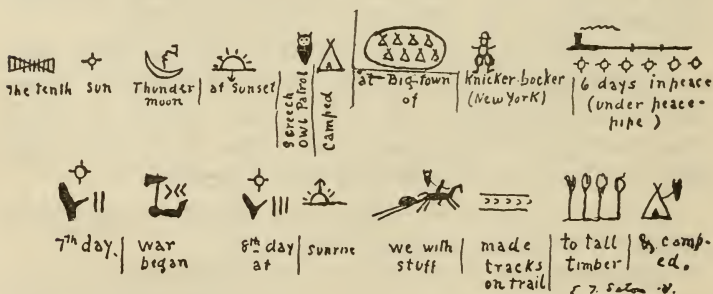 The Tenth Sun Thunder moon at Sunset Screech Owl Patrol Camped at Big-town of Knicker-bocker (New York) 6 days in peace (under peace-pipe)
7th day. War began 8th day at Sunrise we with stuff made tracks on trail to tall timber & camp-ed.